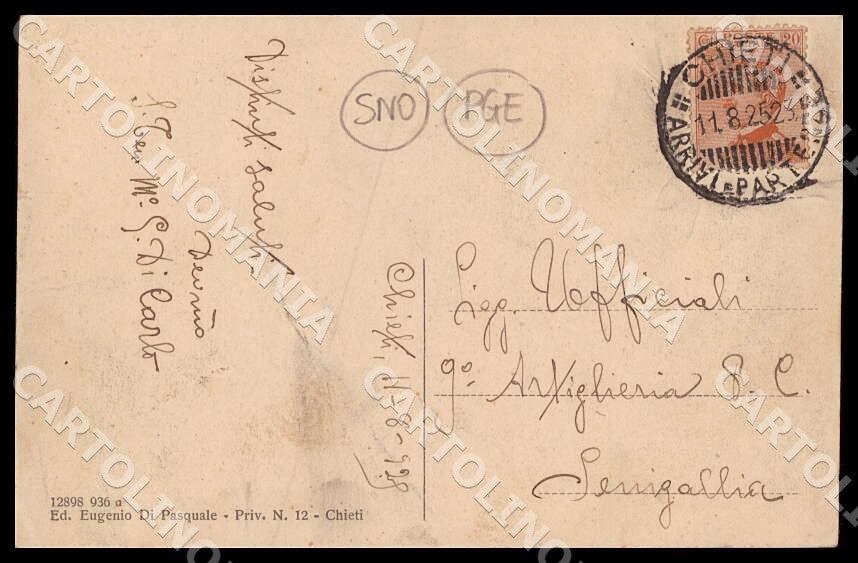 Distinti saluti
Dev.mo
S. Ten. M° G. Di Carlo
Chieti, 11-8-925
SNO
PGE
POSTE
20
CHIETI
11.8.25 23
ARRIVI - PARTENZE
Sigg. Ufficiali
9° Artiglieria P. C.
Senigallia
12898 936 a
Ed. Eugenio Di Pasquale - Priv. N. 12 - Chieti
CARTOLINOMANIA